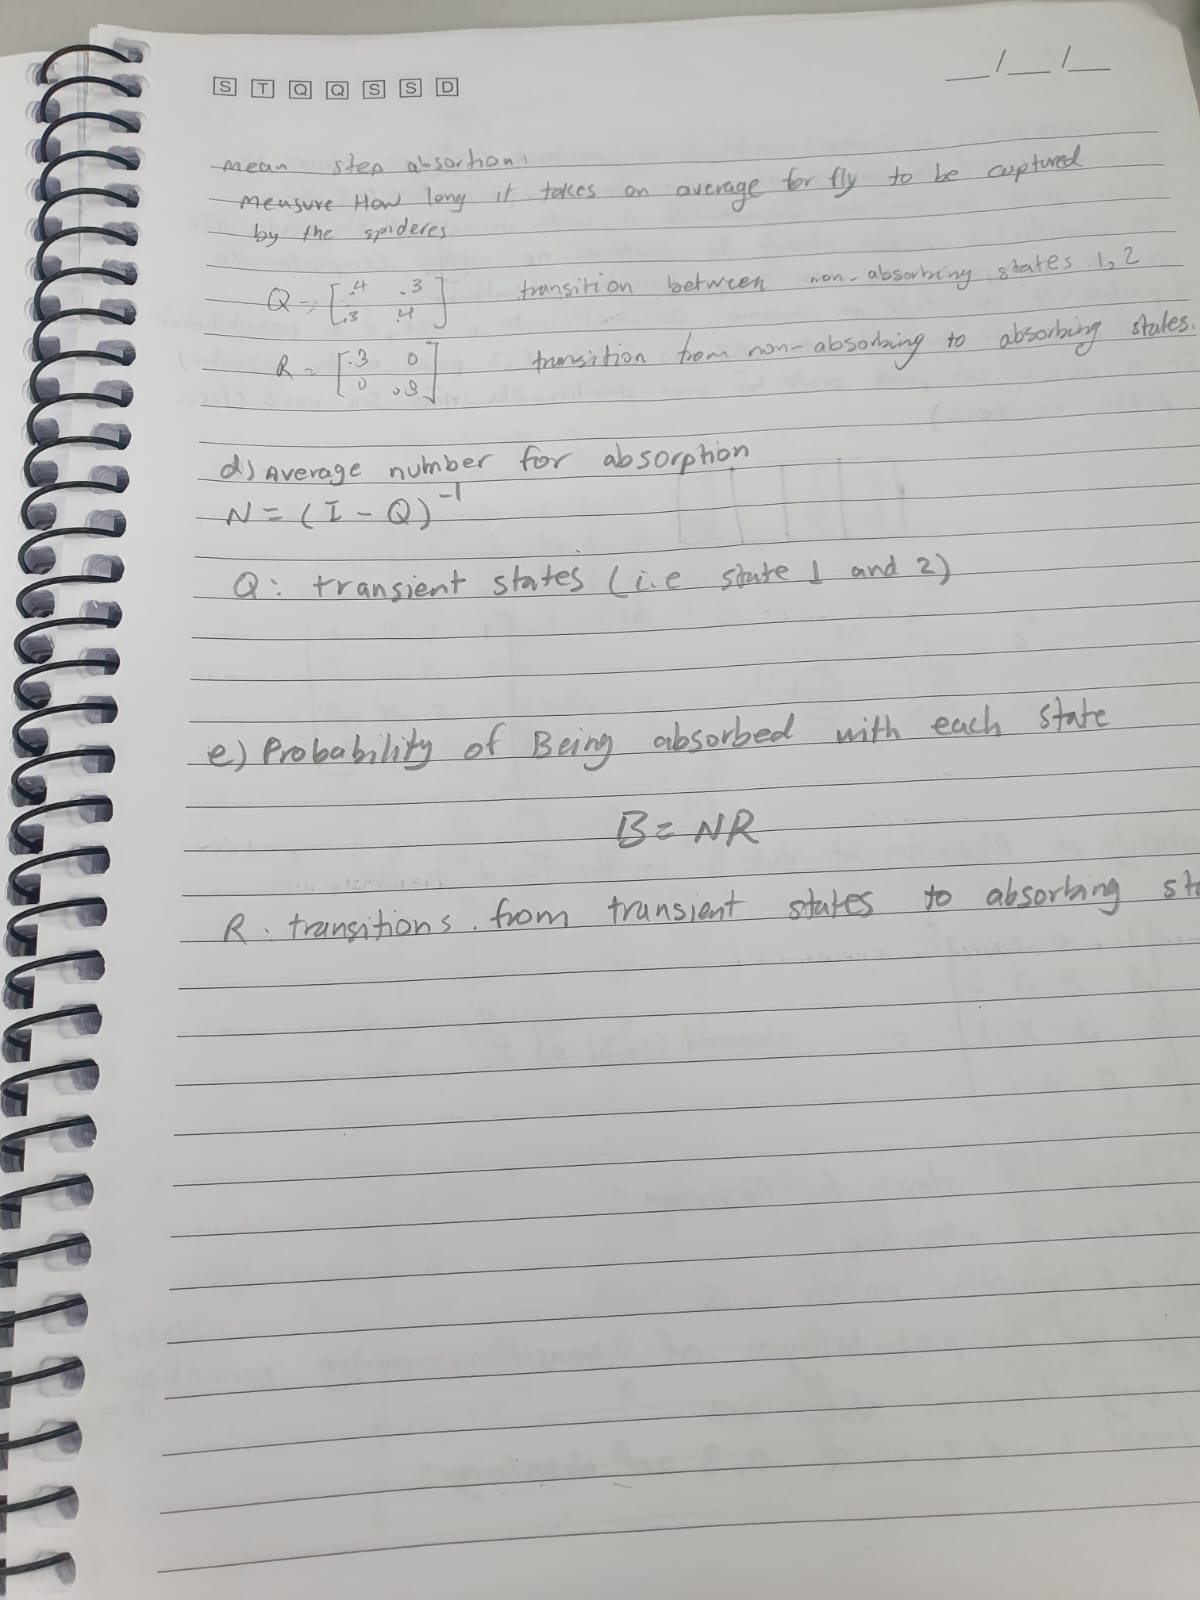 S T Q Q S S D
__/__/__
mean step absortion,
measure How long it takes on average for fly to be captured
by the spideres
Q = [.4 .3 transition between non-absorbing states 1,2
.3 .4]
R = [.3 0 transition from non-absorbing to absorbing states.
0 .3]
d) Average number for absorption
N = (I - Q)^-1
Q: transient states (i.e state 1 and 2)
e) Probability of Being absorbed with each state
B = NR
R: transitions from transient states to absorbing